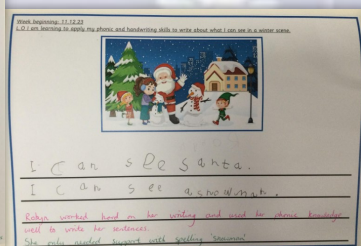 Week beginning: 11.12.23
L.O I am learning to apply my phonic and handwriting skills to write about what I can see in a winter scene.
I can see santa.
I can see a snowman.
Robyn worked hard on her writing and used her phonic knowledge
well to write her sentences.
She only needed support with spelling 'snowman'